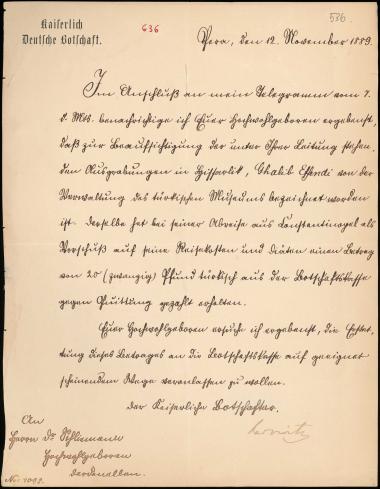 Kaiserlich
Deutsche Botschaft.
636
536.
Pera, den 12. November 1889.
Im Anschluß an mein Telegramm vom 7.
d. Mts. benachrichtige ich Euer Hochwohlgeboren ergebenst,
daß zur Beaufsichtigung der unter Ihrer Leitung stehen-
den Ausgrabungen in Hissarlik, Ghalib Effendi von der
Verwaltung des türkischen Museums bezeichnet worden
ist. Derselbe hat bei seiner Abreise aus Constantinopel als
Vorschuß auf seine Reisekosten und Diäten einen Betrag
von 20 (zwanzig) Pfund türkisch aus der Botschaftskasse
gegen Quittung gezahlt erhalten.
Euer Hochwohlgeboren ersuche ich ergebenst, die Erstat-
tung dieses Betrages an die Botschaftskasse auf geeignet
scheinendem Wege veranlassen zu wollen.
Der Kaiserliche Botschafter.
An
Herrn Dr. Schliemann
Hochwohlgeboren
Dardanellen.